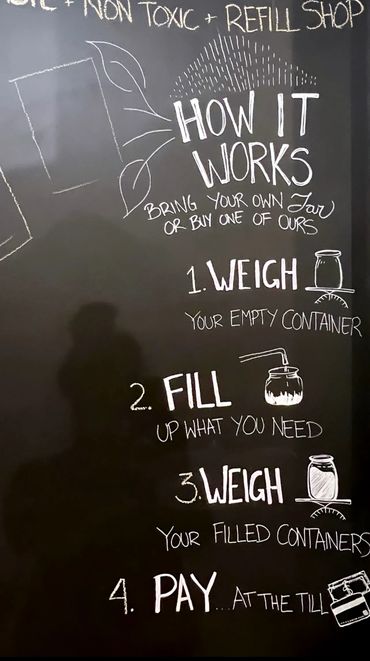 + NON TOXIC + REFILL SHOP
HOW IT
WORKS
BRING YOUR OWN Jar
OR BUY ONE OF OURS
1. WEIGH
YOUR EMPTY CONTAINER
2. FILL
UP WHAT YOU NEED
3. WEIGH
YOUR FILLED CONTAINERS
4. PAY... AT THE TILL